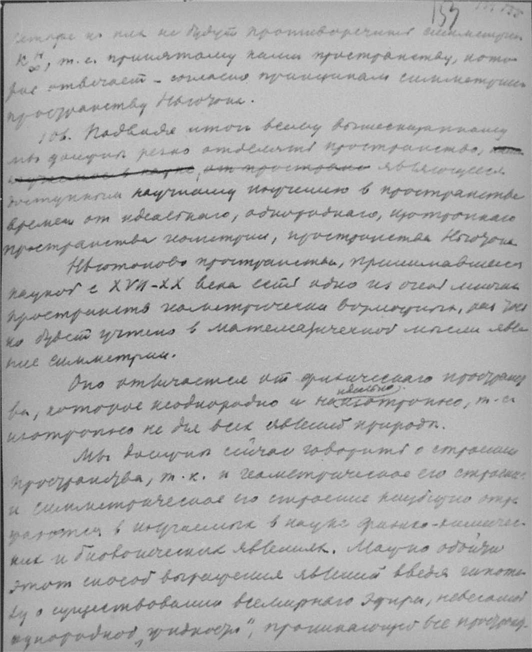 157
из них не будут противоречить симметрии
т.е. принятому нами пространству, кото
рое отвечает - согласно принципам симметрии
пространству Ньютона.
106. Подводя итоги всему вышесказанному
мы должны резко отделять пространство,
от пространства являющееся
доступным научному изучению в пространстве
времени от идеального, однородного, изотропного
пространства геометрии, пространства Ньютона.
Ньютоново пространство, принимавшееся
наукой с XVII-XX века есть одно из
пространств геометрически возможных, раз
будет учтено в математической мысли явле
ние симметрии.
Оно отличается от физического пространс
ва, которое неоднородно и изотропно, т.е.
изотропно не для всех явлений природы.
Мы должны сейчас говорить о строении
пространства, т.к. и геометрическое его строение
и симметрическое его строение отра
жаются в изучаемых в науке физико-химичес
ких и биологических явлениях. Можно обойти
этот способ выражения явлений введя гипоте
зу о существовании всемирного эфира, невесомой
однородной "жидкости", проникающей все простран